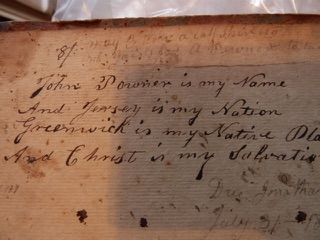 8/
John Powner is my Name
And Jersey is my Nation
Greenwich is my Native Pla
And Christ is my Salvatio
Jonatha
July 21